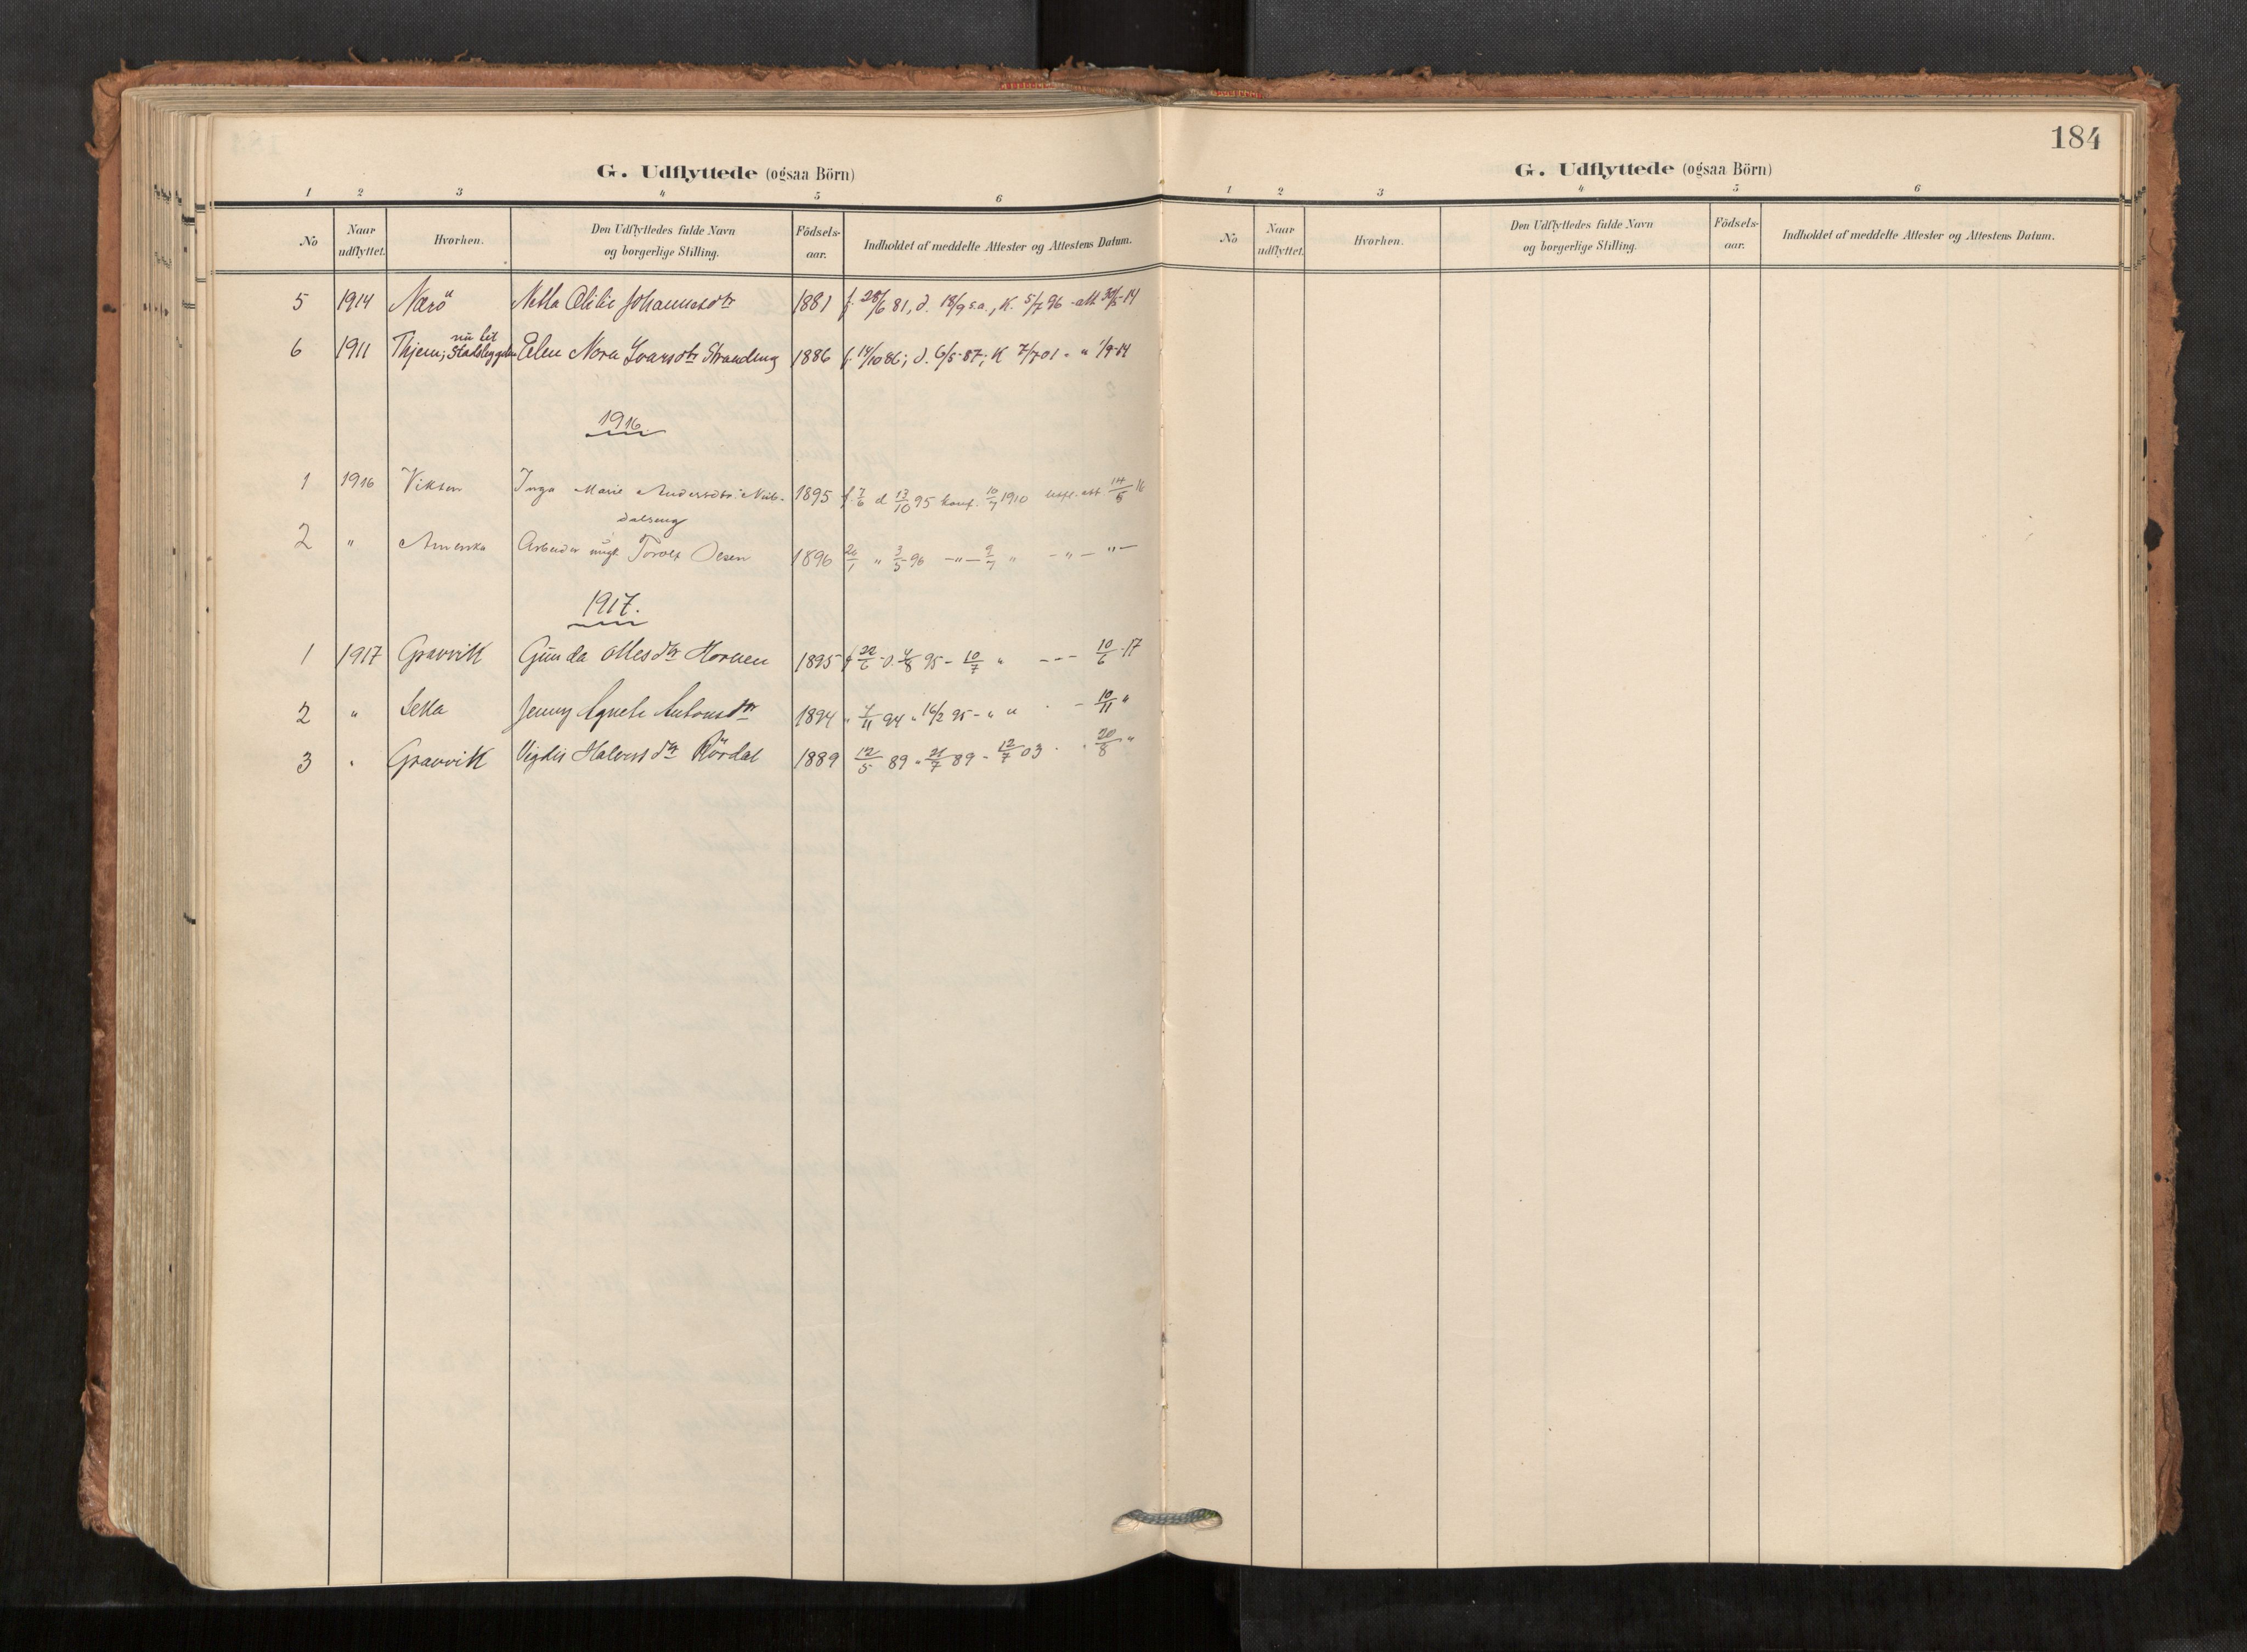 184
G. Udflyttede (ogsaa Börn)
1 2 3 4 5 6
No Naar udflyttet. Hvorhen. Den Udflyttedes fulde Navn og borgerlige Stilling. Födsels-aar. Indholdet af meddelte Attester og Attestens Datum.
5 1914 Nærö Netta Otilie Johannesdtr 1881 f. 28/6 81, d. 18/9 s.a., K. 5/7 96 - att 30/5-14
nu til
6 1911 Thjem; Stadsbygden Elen Nora Ivarsdtr Strandeng 1886 f. 14/10 86; d. 6/5-87; K 7/7 01 - " 1/9-14
1916.
1 1916 Vikten Inga Marie Andersdtr. 1895 f. 7/6 d 13/10 95 konf. 10/7 1910 att 14/5 16
dalseng
2 " Amerika Arbeider ungk. Torolf Olsen 1896 26/1 " 3/5 96 -"- 9/7 " -"- "-
1917.
1 1917 Gravvik Gunda Ottesdtr Hornen 1895 f 22/6 - d. 4/8 95 - 10/7 " --- 10/6-17
2 " Leka Jenny Agnete Antonsdtr 1894 " 4/11 94 " 16/2 95 - " " - 10/11 "
3 " Gravvik Vigdis Halvorsdtr Rördal 1889 12/5 89 " 21/7 89 - 12/7 03 " 20/8 "
G. Udflyttede (ogsaa Börn)
1 2 3 4 5 6
No Naar udflyttet. Hvorhen. Den Udflyttedes fulde Navn og borgerlige Stilling. Födsels-aar. Indholdet af meddelte Attester og Attestens Datum.